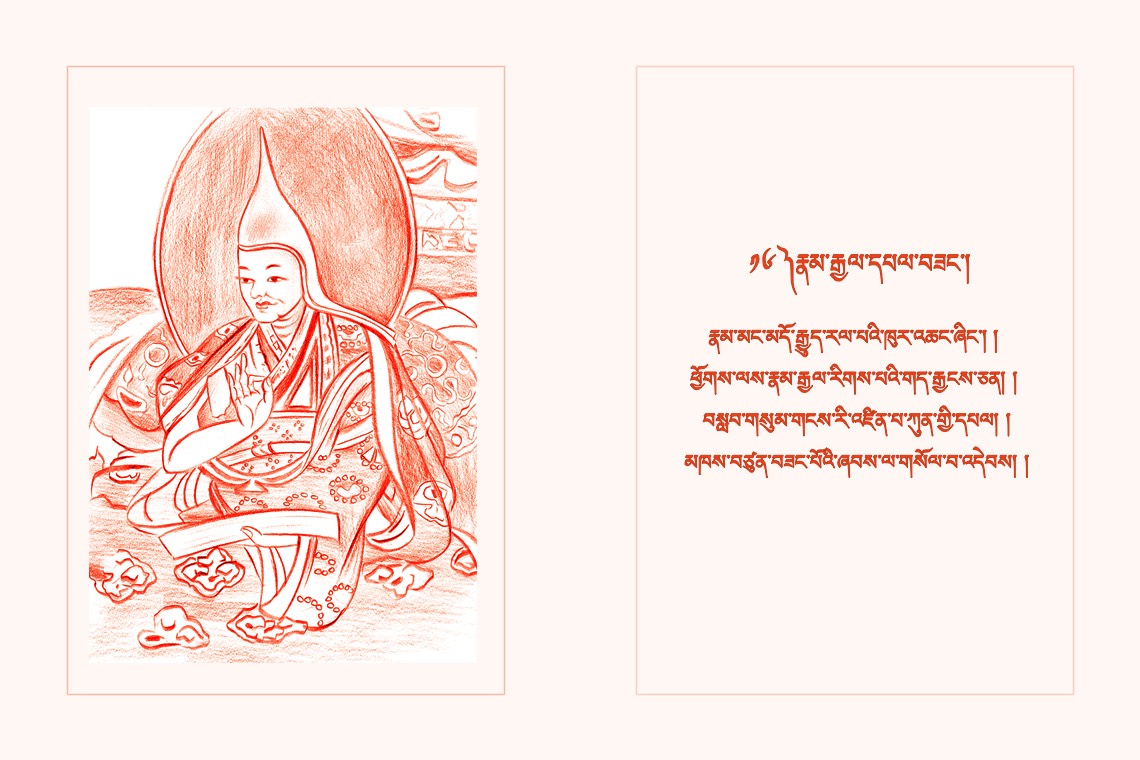 ༡༦ ༽རྣམ་རྒྱལ་དཔལ་བཟང་།
རྣམ་མང་མདོ་རྒྱུད་རལ་པའི་ཁུར་འཆང་ཞིང་། །
ཕྱོགས་ལས་རྣམ་རྒྱལ་རིགས་པའི་གད་རྒྱངས་ཅན། །
བསླབ་གསུམ་གངས་རི་འཛིན་པ་ཀུན་གྱི་དཔལ། །
མཁས་བཙུན་བཟང་པོའི་ཞབས་ལ་གསོལ་བ་འདེབས། །